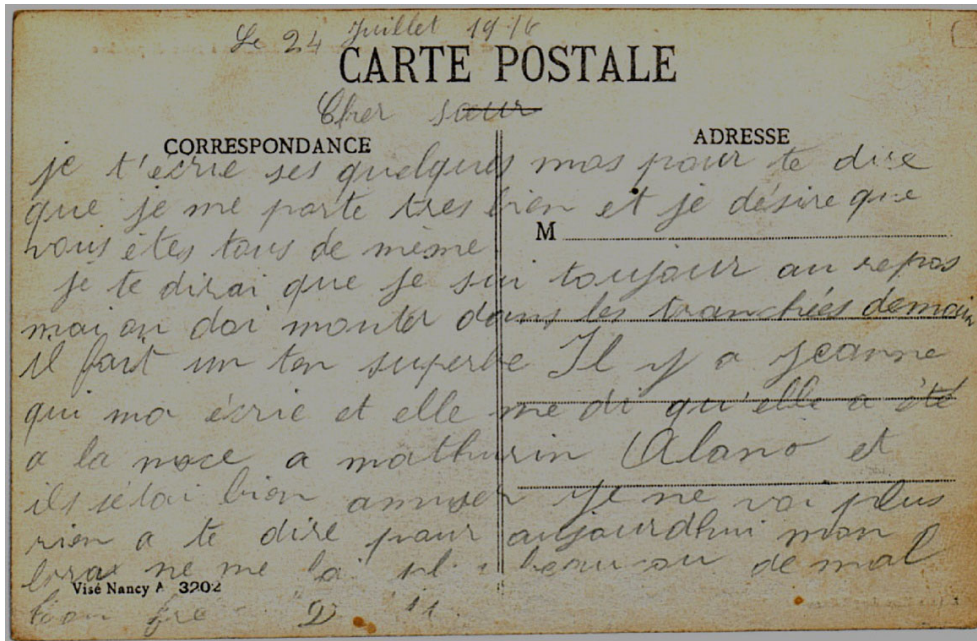 Le 24 Juillet 1916
CARTE POSTALE
Cher sœur
CORRESPONDANCE
ADRESSE
je t'écrie ses quelques mos pour te dire
que je me porte tres bien et je désire que
vous êtes tous de même
M
je te dirai que je sui toujour au repos
mai on doi monter dans les tranchées demain
il fait un ten superbe Il y a jeanne
qui ma écrie et elle me di qu'elle a été
a la noce a mathurin Alano et
ils s'étai bien amuser je ne voi plus
rien a te dire pour aujourdhui mon
bras ne me de mal
Visé Nancy A 3202
ton